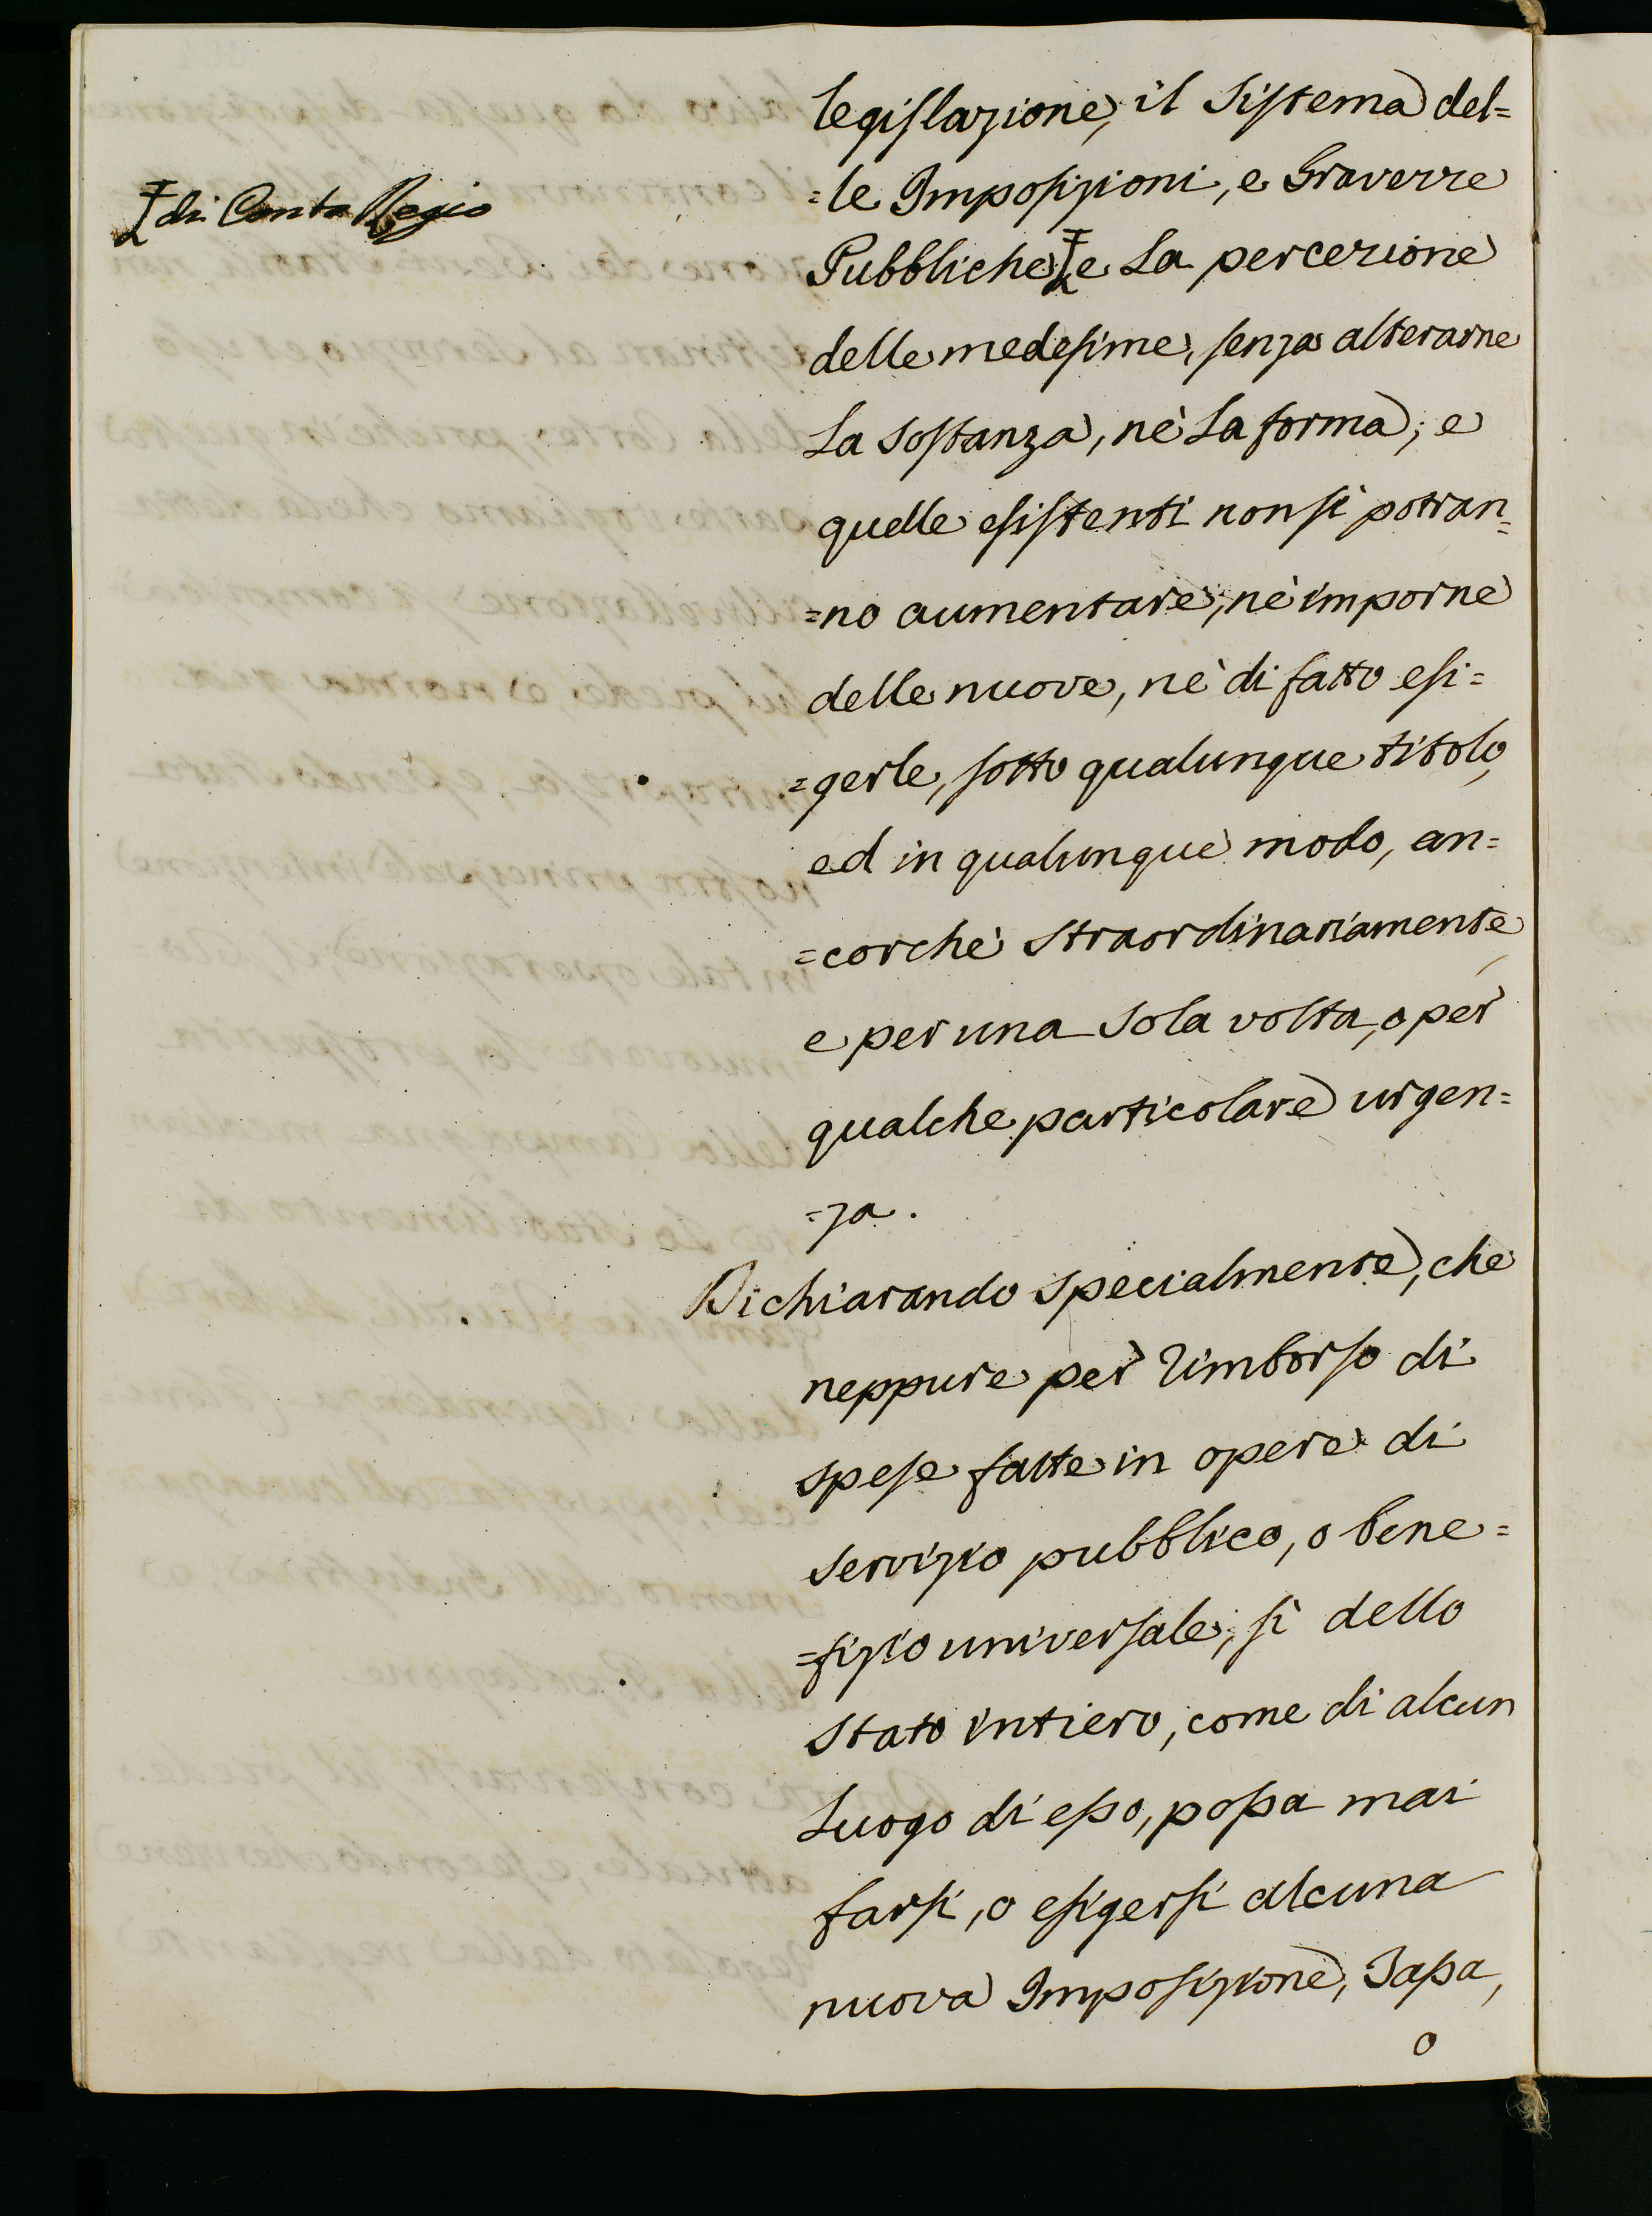 legislazione, il Sistema del=
=le Imposizioni, e Gravezze
Pubbliche, e La percezione
delle medesime, senza alterarne
La Sostanza, nè La forma; e
quelle esistenti non si potran=
=no aumentare, nè imporne
delle nuove, nè di fatto esi=
=gerle, sotto qualunque titolo,
ed in qualunque modo, an=
=corchè Straordinariamente,
e per una Sola volta, o per
qualche particolare urgen=
=za.
Dichiarando Specialmente, che
neppure per rimborso di
Spese fatte in opere di
Servizio pubblico, o bene=
=fizio universale, sì dello
Stato intiero, come di alcun
Luogo di esso, possa mai
farsi, o esigersi alcuna
nuova Imposizione, Tassa,
o
di Conto Regio